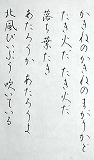 かきねのかきねのまがりかど
たき火だたき火だ
落ち葉たき
あたろうかあたろうよ
北風ぴいぷう吹いている